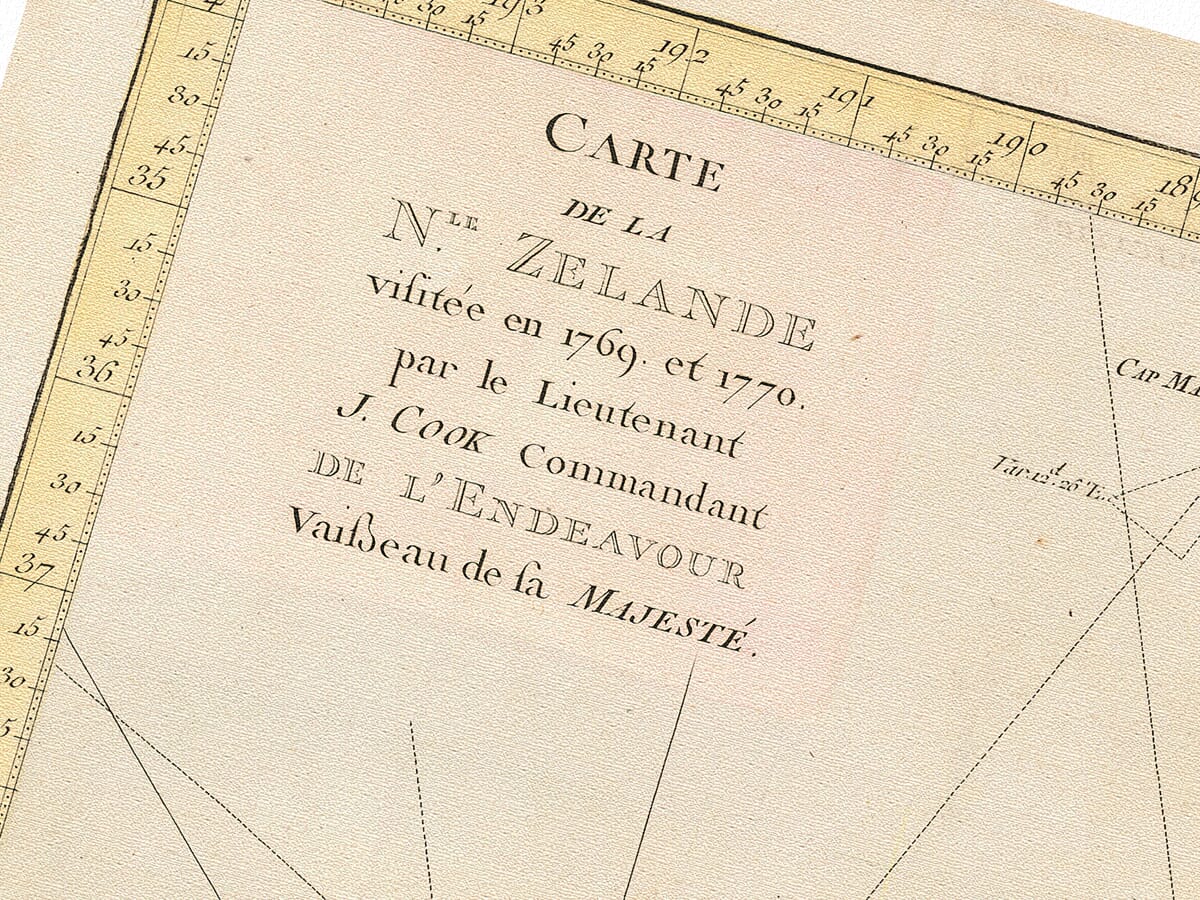 193 45 30 15 192 45 30 15 191 45 30 15 190 45 30 15
15
30
45
35
15
30
45
36
15
30
45
37
15
30
CARTE
DE LA
N.LE ZELANDE
viſitée en 1769. et 1770.
par le Lieutenant
J. COOK Commandant
DE L'ENDEAVOUR
Vaiſseau de ſa MAJESTÉ.
CAP